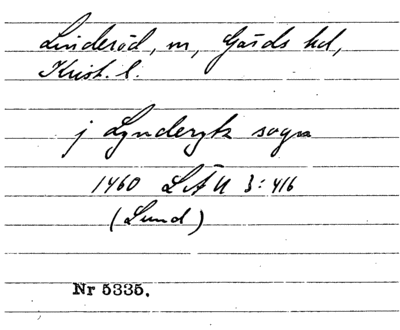 Linderöd, sn, Gärds hd,
Krist. l.
j Lynderyk sogn
1460 LÄU 3:416
(Lund)
Nr 5335.